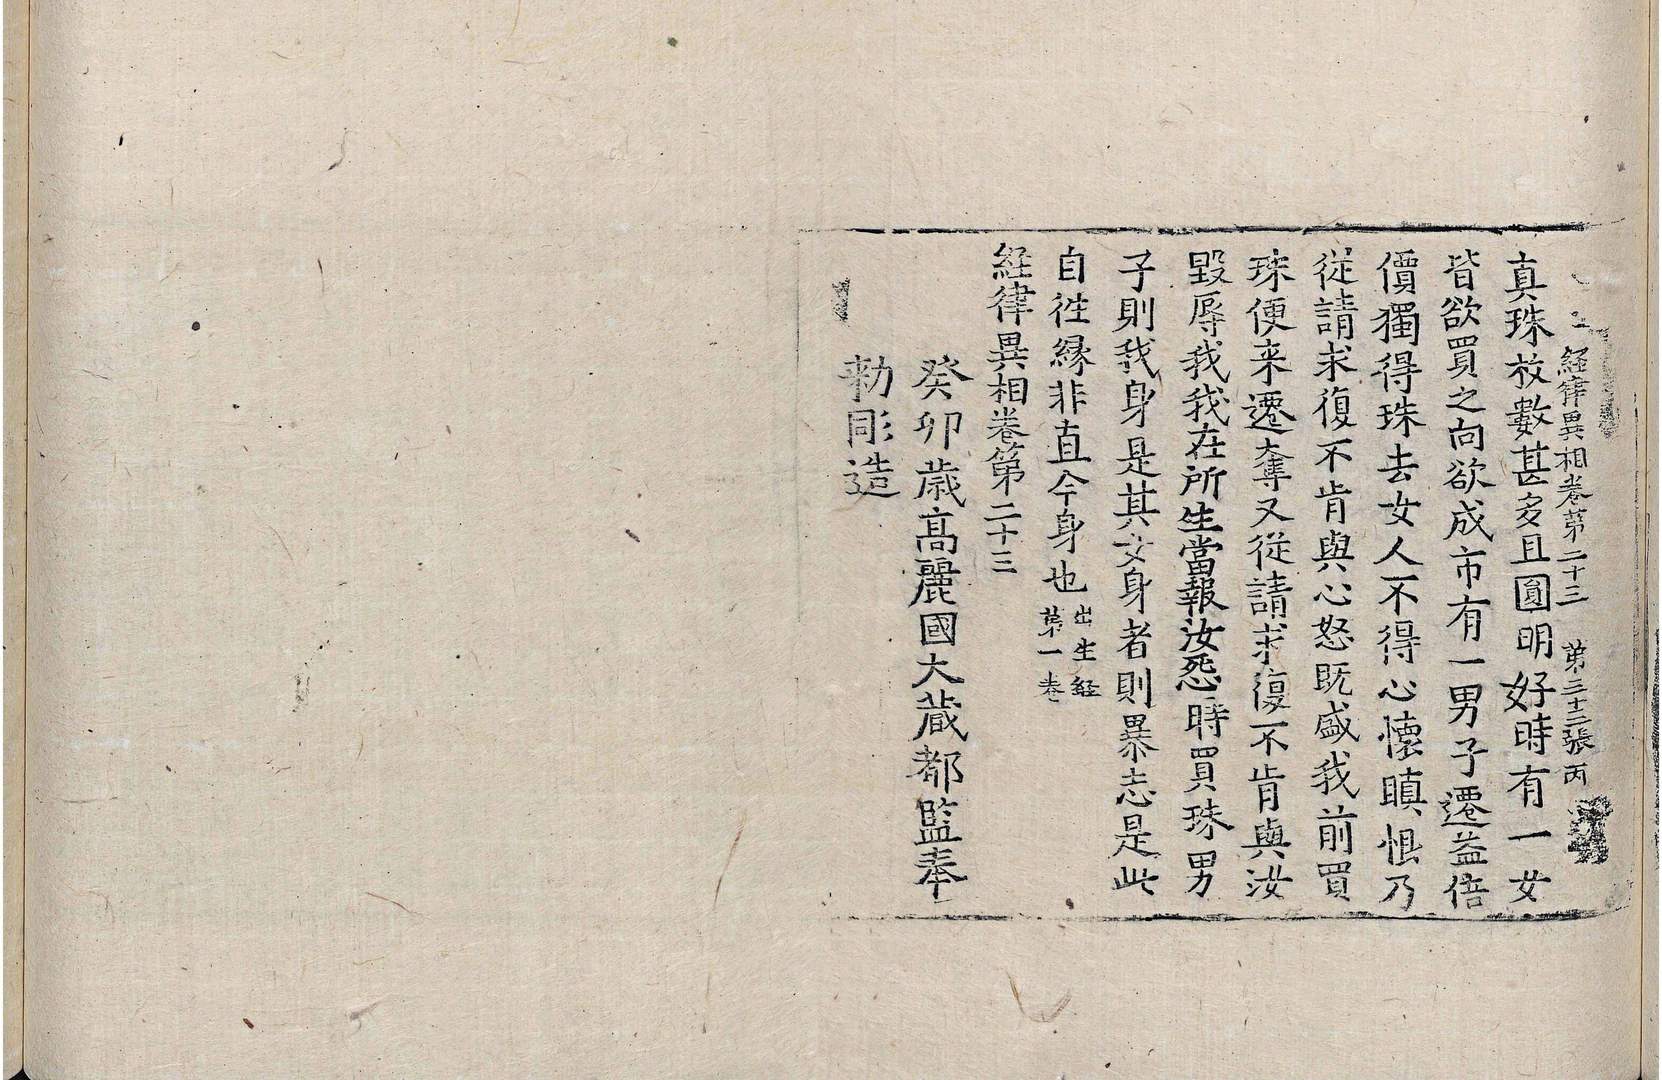 経律異相卷第二十三 第三十二張 丙
真珠枚數甚多且圓明好時有一女
皆欲買之向欲成市有一男子遷益倍
價獨得珠去女人不得心懷瞋恨乃
從請求復不肯與心怒既盛我前買
珠便来遷奪又從請求復不肯與汝
毀辱我我在所生當報汝怨時買珠男
子則我身是其女身者則暴志是此
自徃縁非直今身也 出生経
第一卷
経律異相卷第二十三
癸卯歲髙麗國大藏都監奉
勑彫造